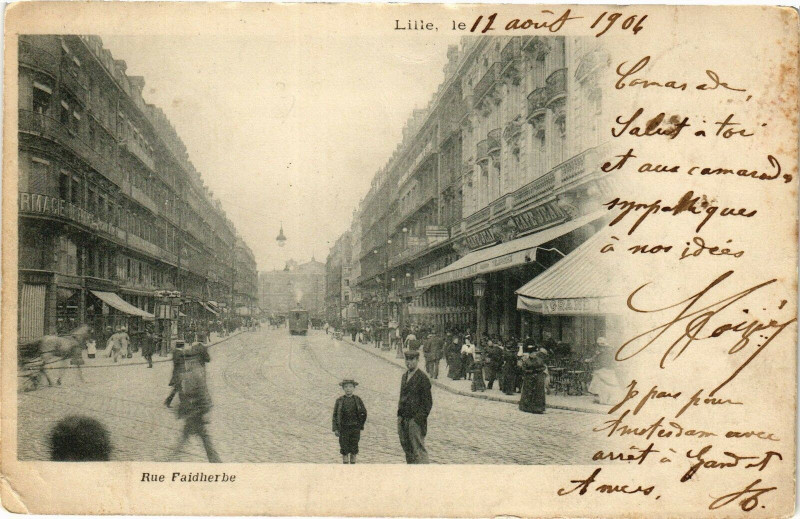 Lille, le 12 août 1904
Camarade,
Salut à toi
et aux camarades
sympatiques
à nos idées
Je pars pour
Amsterdam avec
arrêt à Gand et
Anvers.
Rue Faidherbe